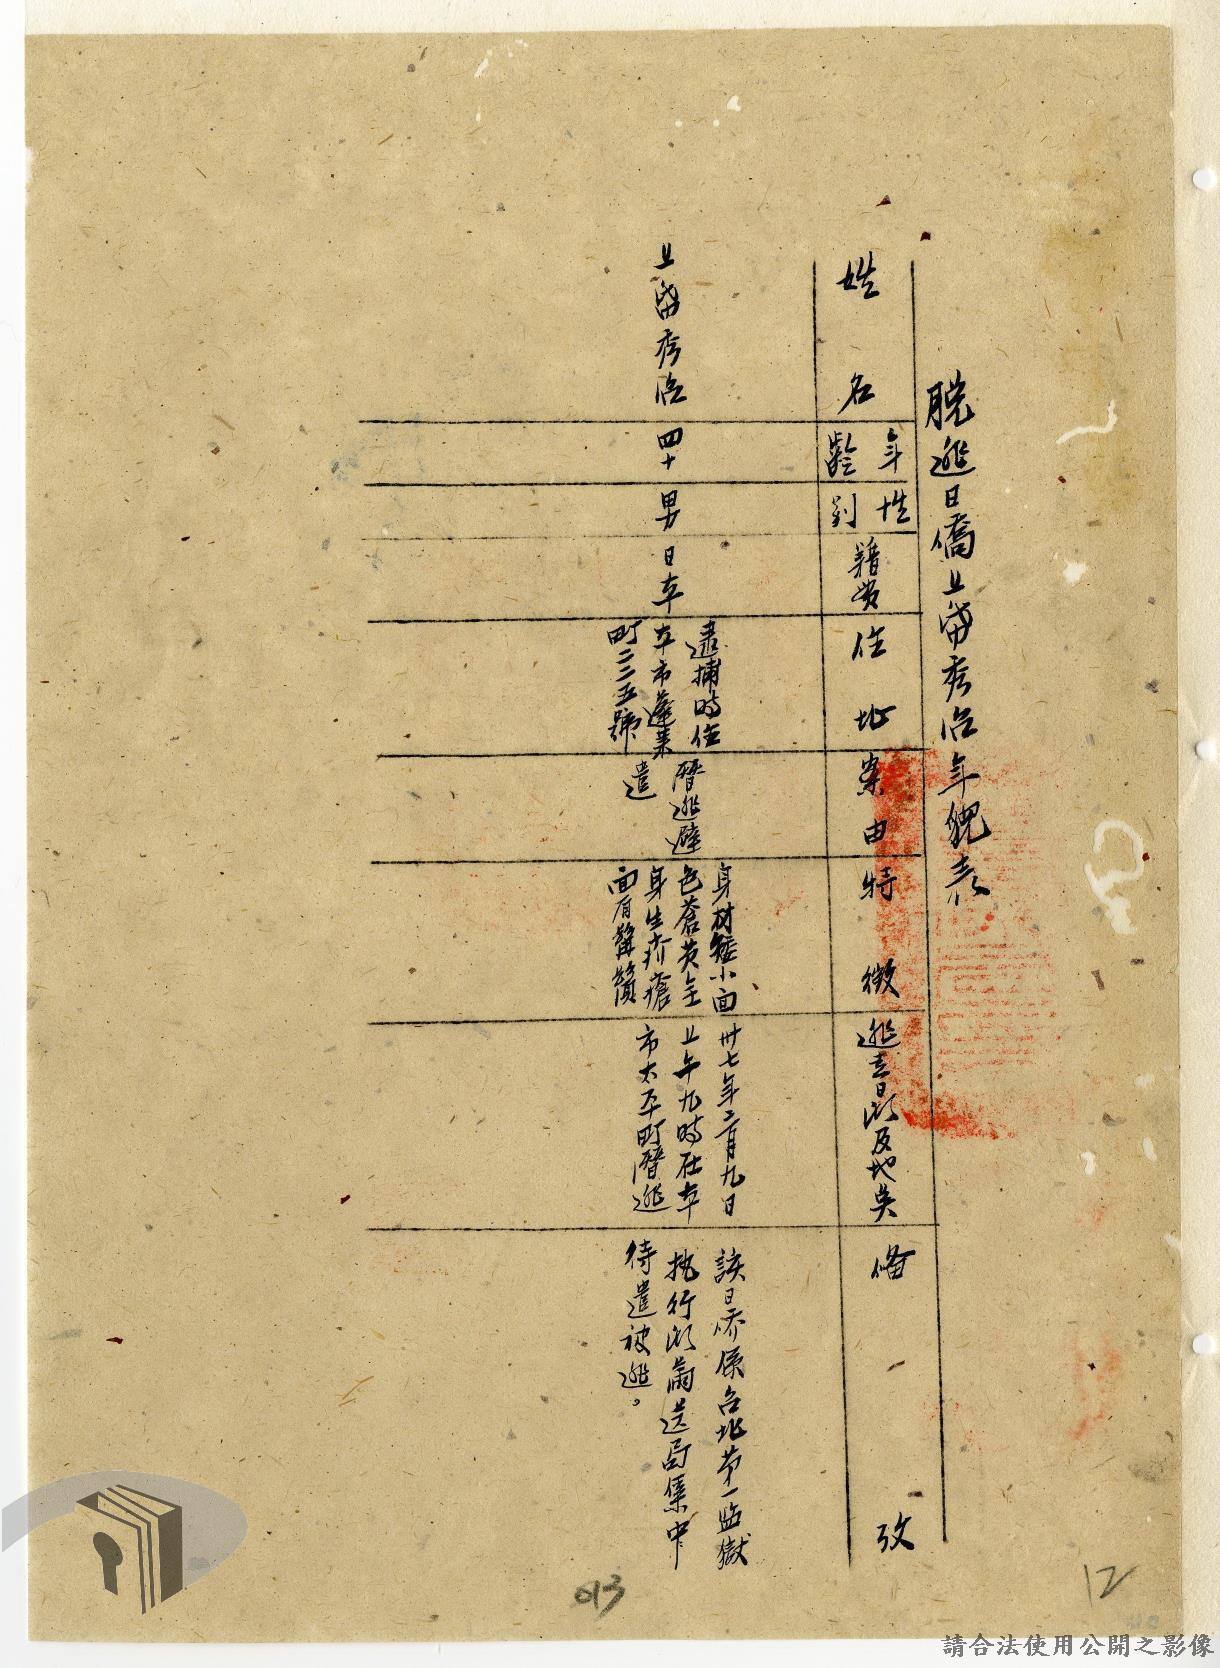 脱逃日僑上畓秀治年貌表
姓名
年齡
性別
籍貫
住址
案由
特徵
逃去日期及地吳
俻攷
上畓秀治
四十
男
日本
逮捕時住
本市蓬莱
町二三五號
暦逃避
遣
身材矮小面
色蒼黄全
身生疥瘡
面有鬍鬚
卅七年二月九日
上午九時在本
市太平町暦逃
該日僑係台北第一監獄
执行期滿送局集中
待遣被逃。
013
12
請合法使用公開之影像